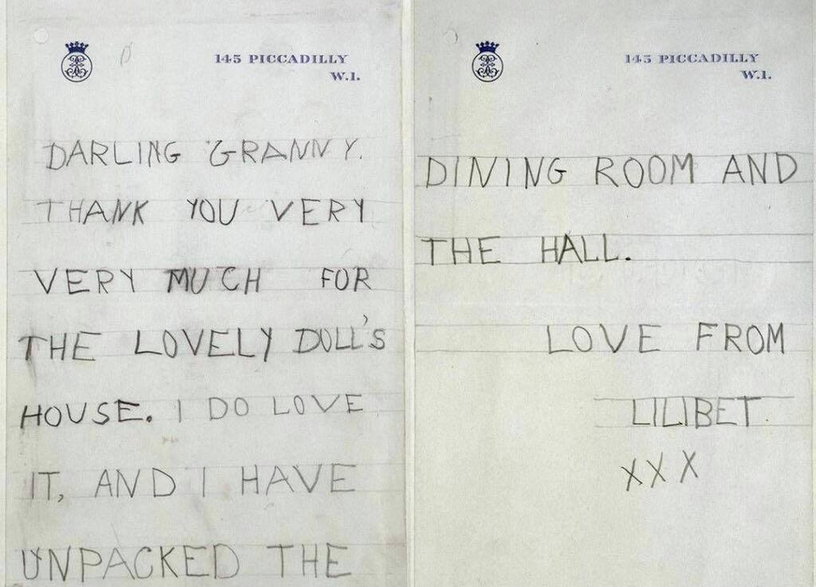 145 PICCADILLY
W.1.
DARLING GRANNY.
THANK YOU VERY
VERY MUCH FOR
THE LOVELY DOLL'S
HOUSE. I DO LOVE
IT, AND I HAVE
UNPACKED THE
145 PICCADILLY
W.1.
DINING ROOM AND
THE HALL.
LOVE FROM
LILIBET.
XXX